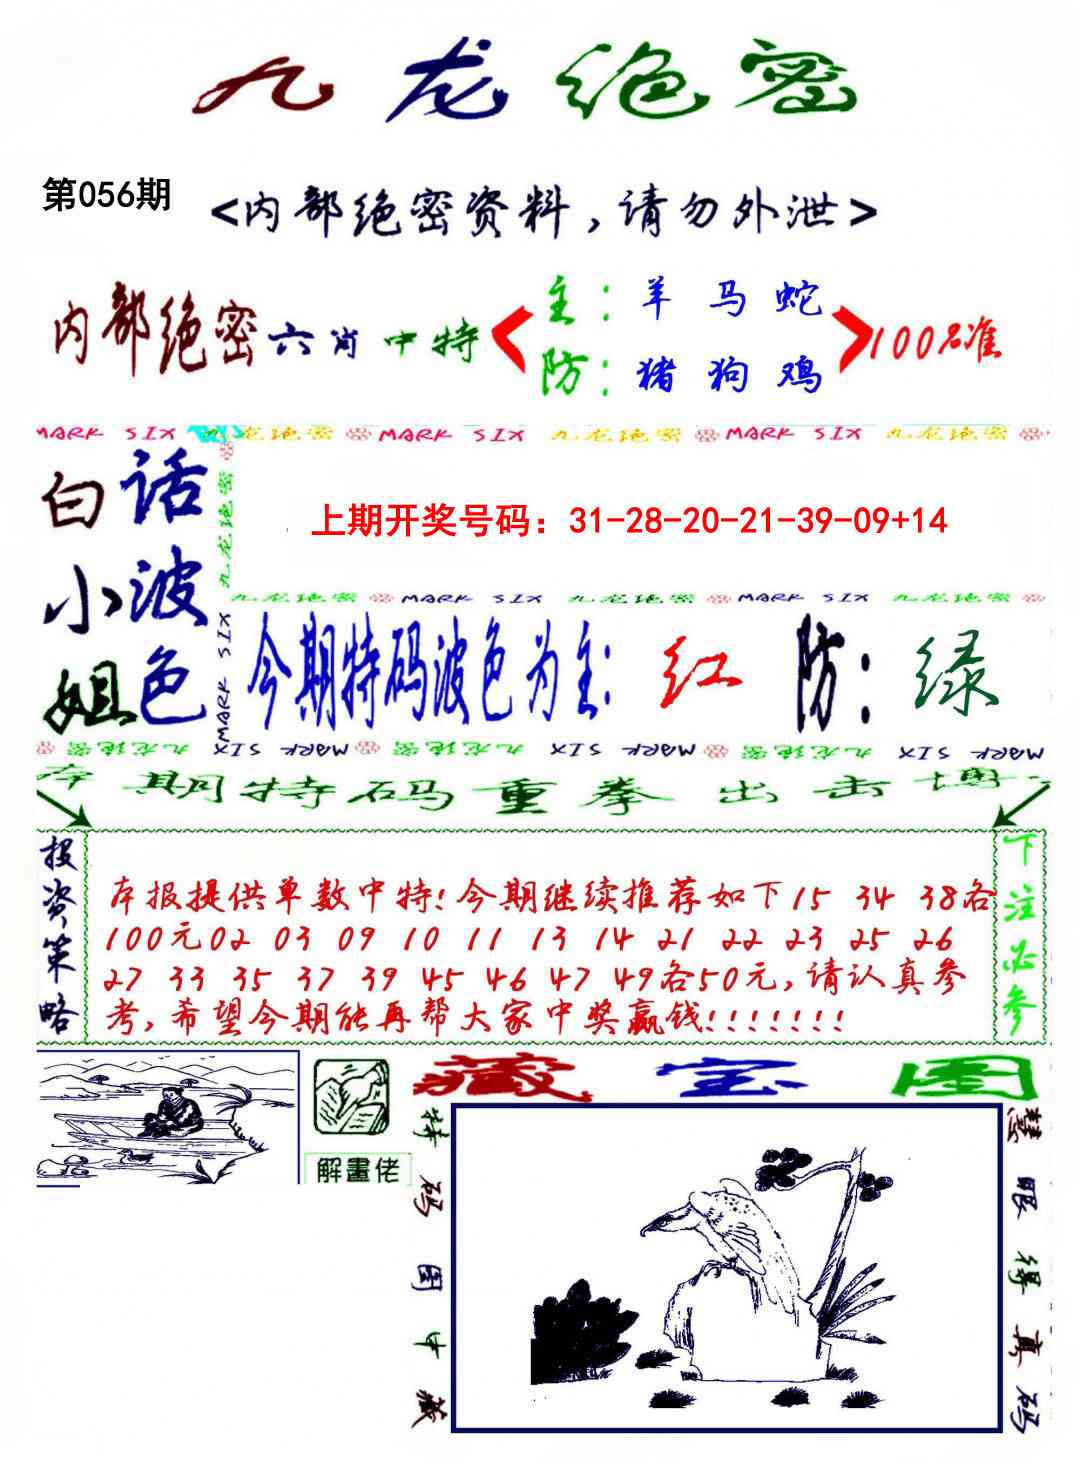 九龙绝密
第056期
<内部绝密资料,请勿外泄>
内部绝密六肖中特
主:羊 马 蛇
防:猪 狗 鸡
100%准
MARK SIX 九龙绝密 MARK SIX 九龙绝密 MARK SIX 九龙绝密
九龙绝密
MARK SIX
白小姐
话波色
上期开奖号码:31-28-20-21-39-09+14
九龙绝密 MARK SIX 九龙绝密 MARK SIX 九龙绝密
今期特码波色为主:红 防:绿
九龙绝密 MARK SIX 九龙绝密 MARK SIX 九龙绝密 MARK SIX
本期特码重拳出击博
投资策略
本报提供单数中特!今期继续推荐如下15 34 38各
100元02 03 09 10 11 13 14 21 22 23 25 26
27 33 35 37 39 45 46 47 49各50元,请认真参
考,希望今期能再帮大家中奖赢钱!!!!!!!
下注必参
解畫佬
藏宝图
特码图中藏
慧眼得真码